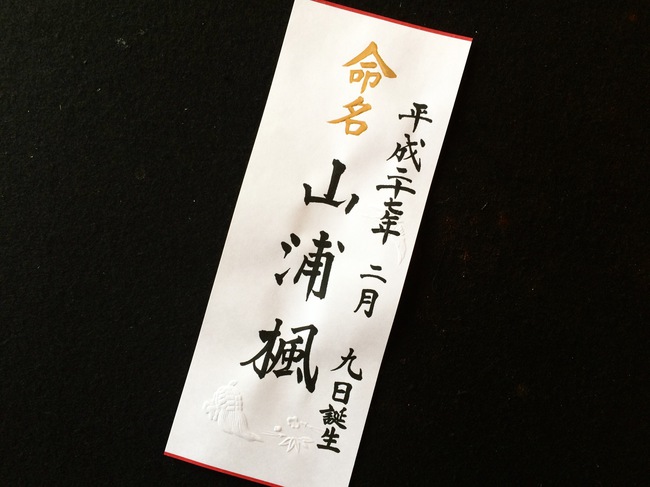 平成二十七年 二月 九日誕生
命名
山浦楓